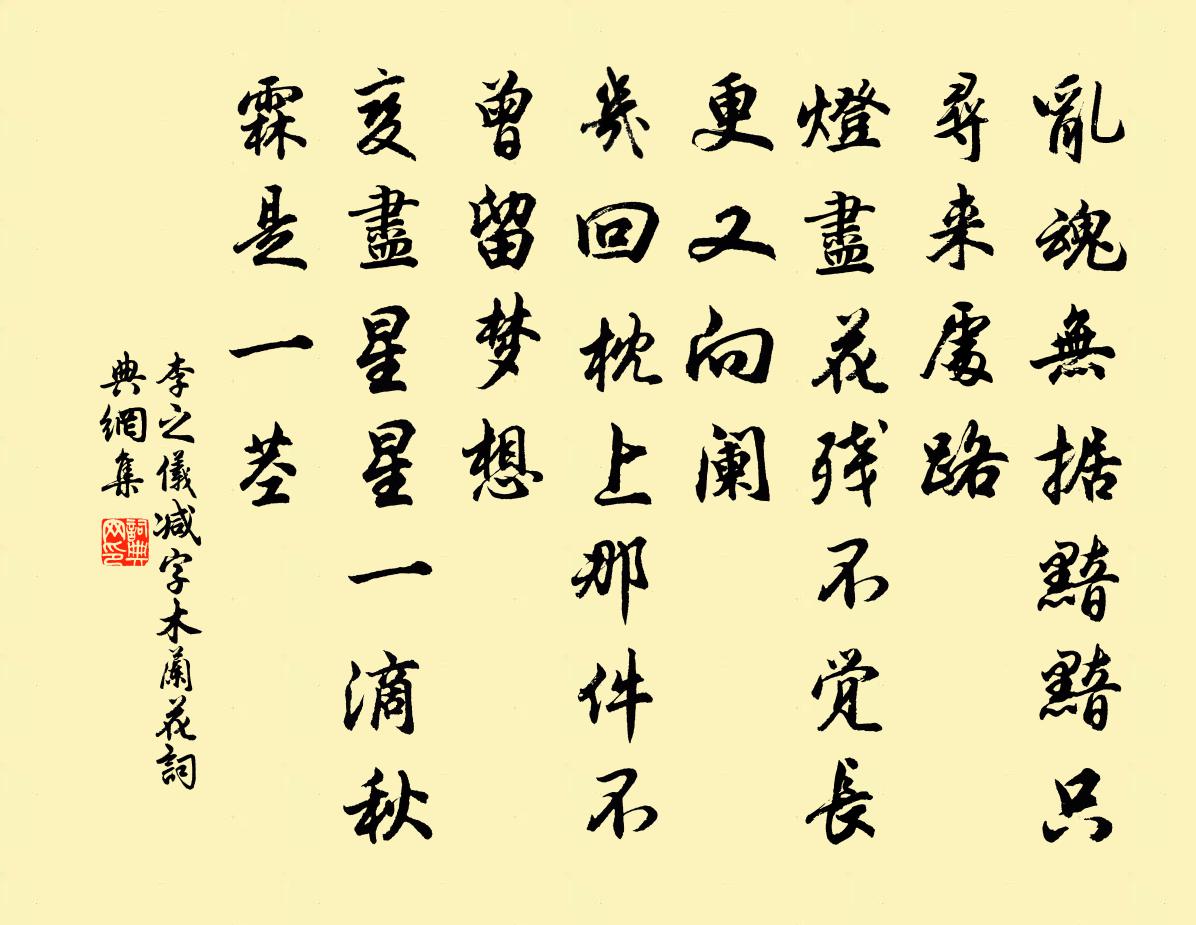 亂魂無据黯黯只
尋来處路
燈盡花残不覚長
更又向阑
幾回枕上那件不
曾留梦想
変盡星星一滴秋
霖是一茎
李之儀减字木蘭花詞
典網集
詞典
网印